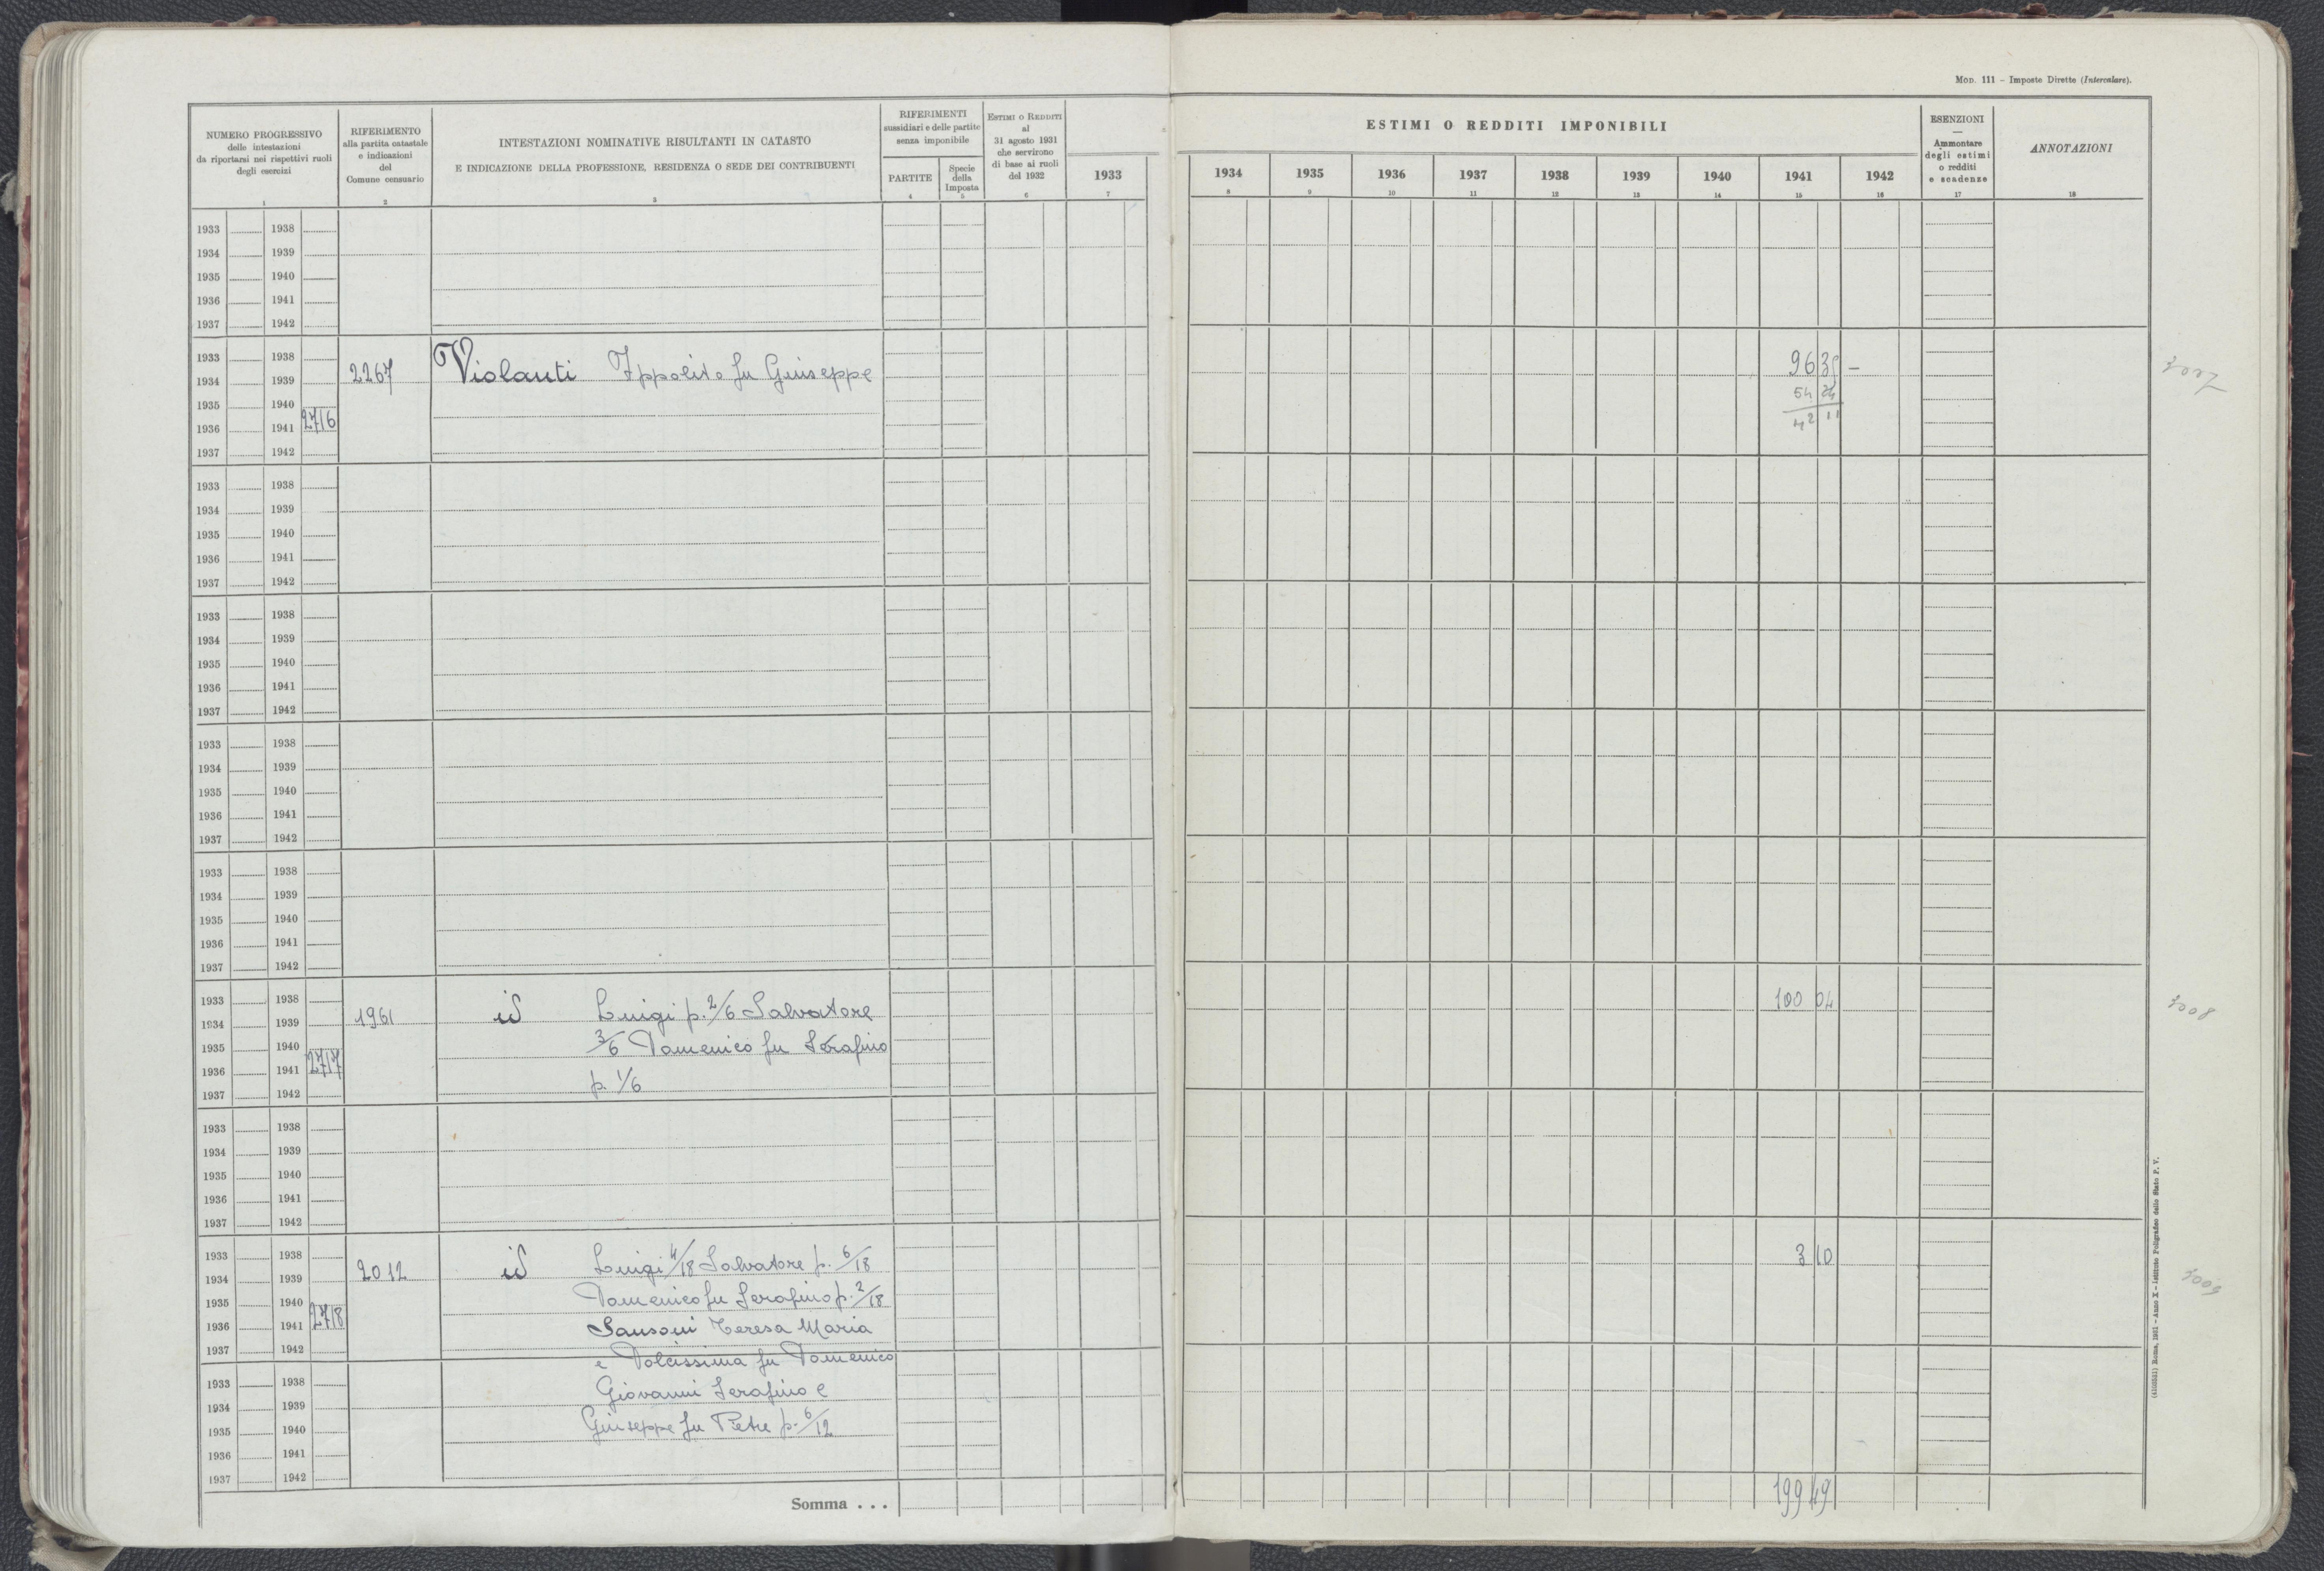 MOD. 111 – Imposte Dirette (Intercalare).
NUMERO PROGRESSIVO
delle intestazioni
da riportarsi nei rispettivi ruoli
degli esercizi
1
RIFERIMENTO
alla partita catastale
e indicazioni
del
Comune censuario
2
INTESTAZIONI NOMINATIVE RISULTANTI IN CATASTO
E INDICAZIONE DELLA PROFESSIONE, RESIDENZA O SEDE DEI CONTRIBUENTI
3
RIFERIMENTI
sussidiari e delle partite
senza imponibile
PARTITE
4
Specie
della
Imposta
5
ESTIMI O REDDITI
al
31 agosto 1931
che servirono
di base ai ruoli
del 1932
6
ESTIMI O REDDITI IMPONIBILI
1933 1934 1935 1936 1937 1938 1939 1940 1941 1942
7 8 9 10 11 12 13 14 15 16
ESENZIONI
—
Ammontare
degli estimi
o redditi
e scadenze
17
ANNOTAZIONI
18
1933 1938
1934 1939
1935 1940
1936 1941
1937 1942
1933 1938
1934 1939 2267 Violanti Ippolito fu Giuseppe 96 35 –
1935 1940 54 24
1936 1941 2716 42 11
1937 1942
3007
1933 1938
1934 1939
1935 1940
1936 1941
1937 1942
1933 1938
1934 1939
1935 1940
1936 1941
1937 1942
1933 1938
1934 1939
1935 1940
1936 1941
1937 1942
1933 1938
1934 1939
1935 1940
1936 1941
1937 1942
1933 1938 100 04
1934 1939 1961 id Luigi p. 2/6 Salvatore
1935 1940 3/6 Domenico fu Serafino
1936 1941 2717 p. 1/6
1937 1942
3008
1933 1938
1934 1939
1935 1940
1936 1941
1937 1942
1933 1938 3 10
1934 1939 2012 id Luigi 4/18 Salvatore p. 6/18
1935 1940 Domenico fu Serafino p. 2/18
1936 1941 2718 Sansoni Teresa Maria
1937 1942 e Dolcissima fu Domenico
3009
1933 1938 Giovanni Serafino e
1934 1939 Giuseppe fu Pietro p. 6/12
1935 1940
1936 1941
1937 1942
Somma . . . 199 49
(4103531) Roma, 1931 – Anno X – Istituto Poligrafico dello Stato P. V.